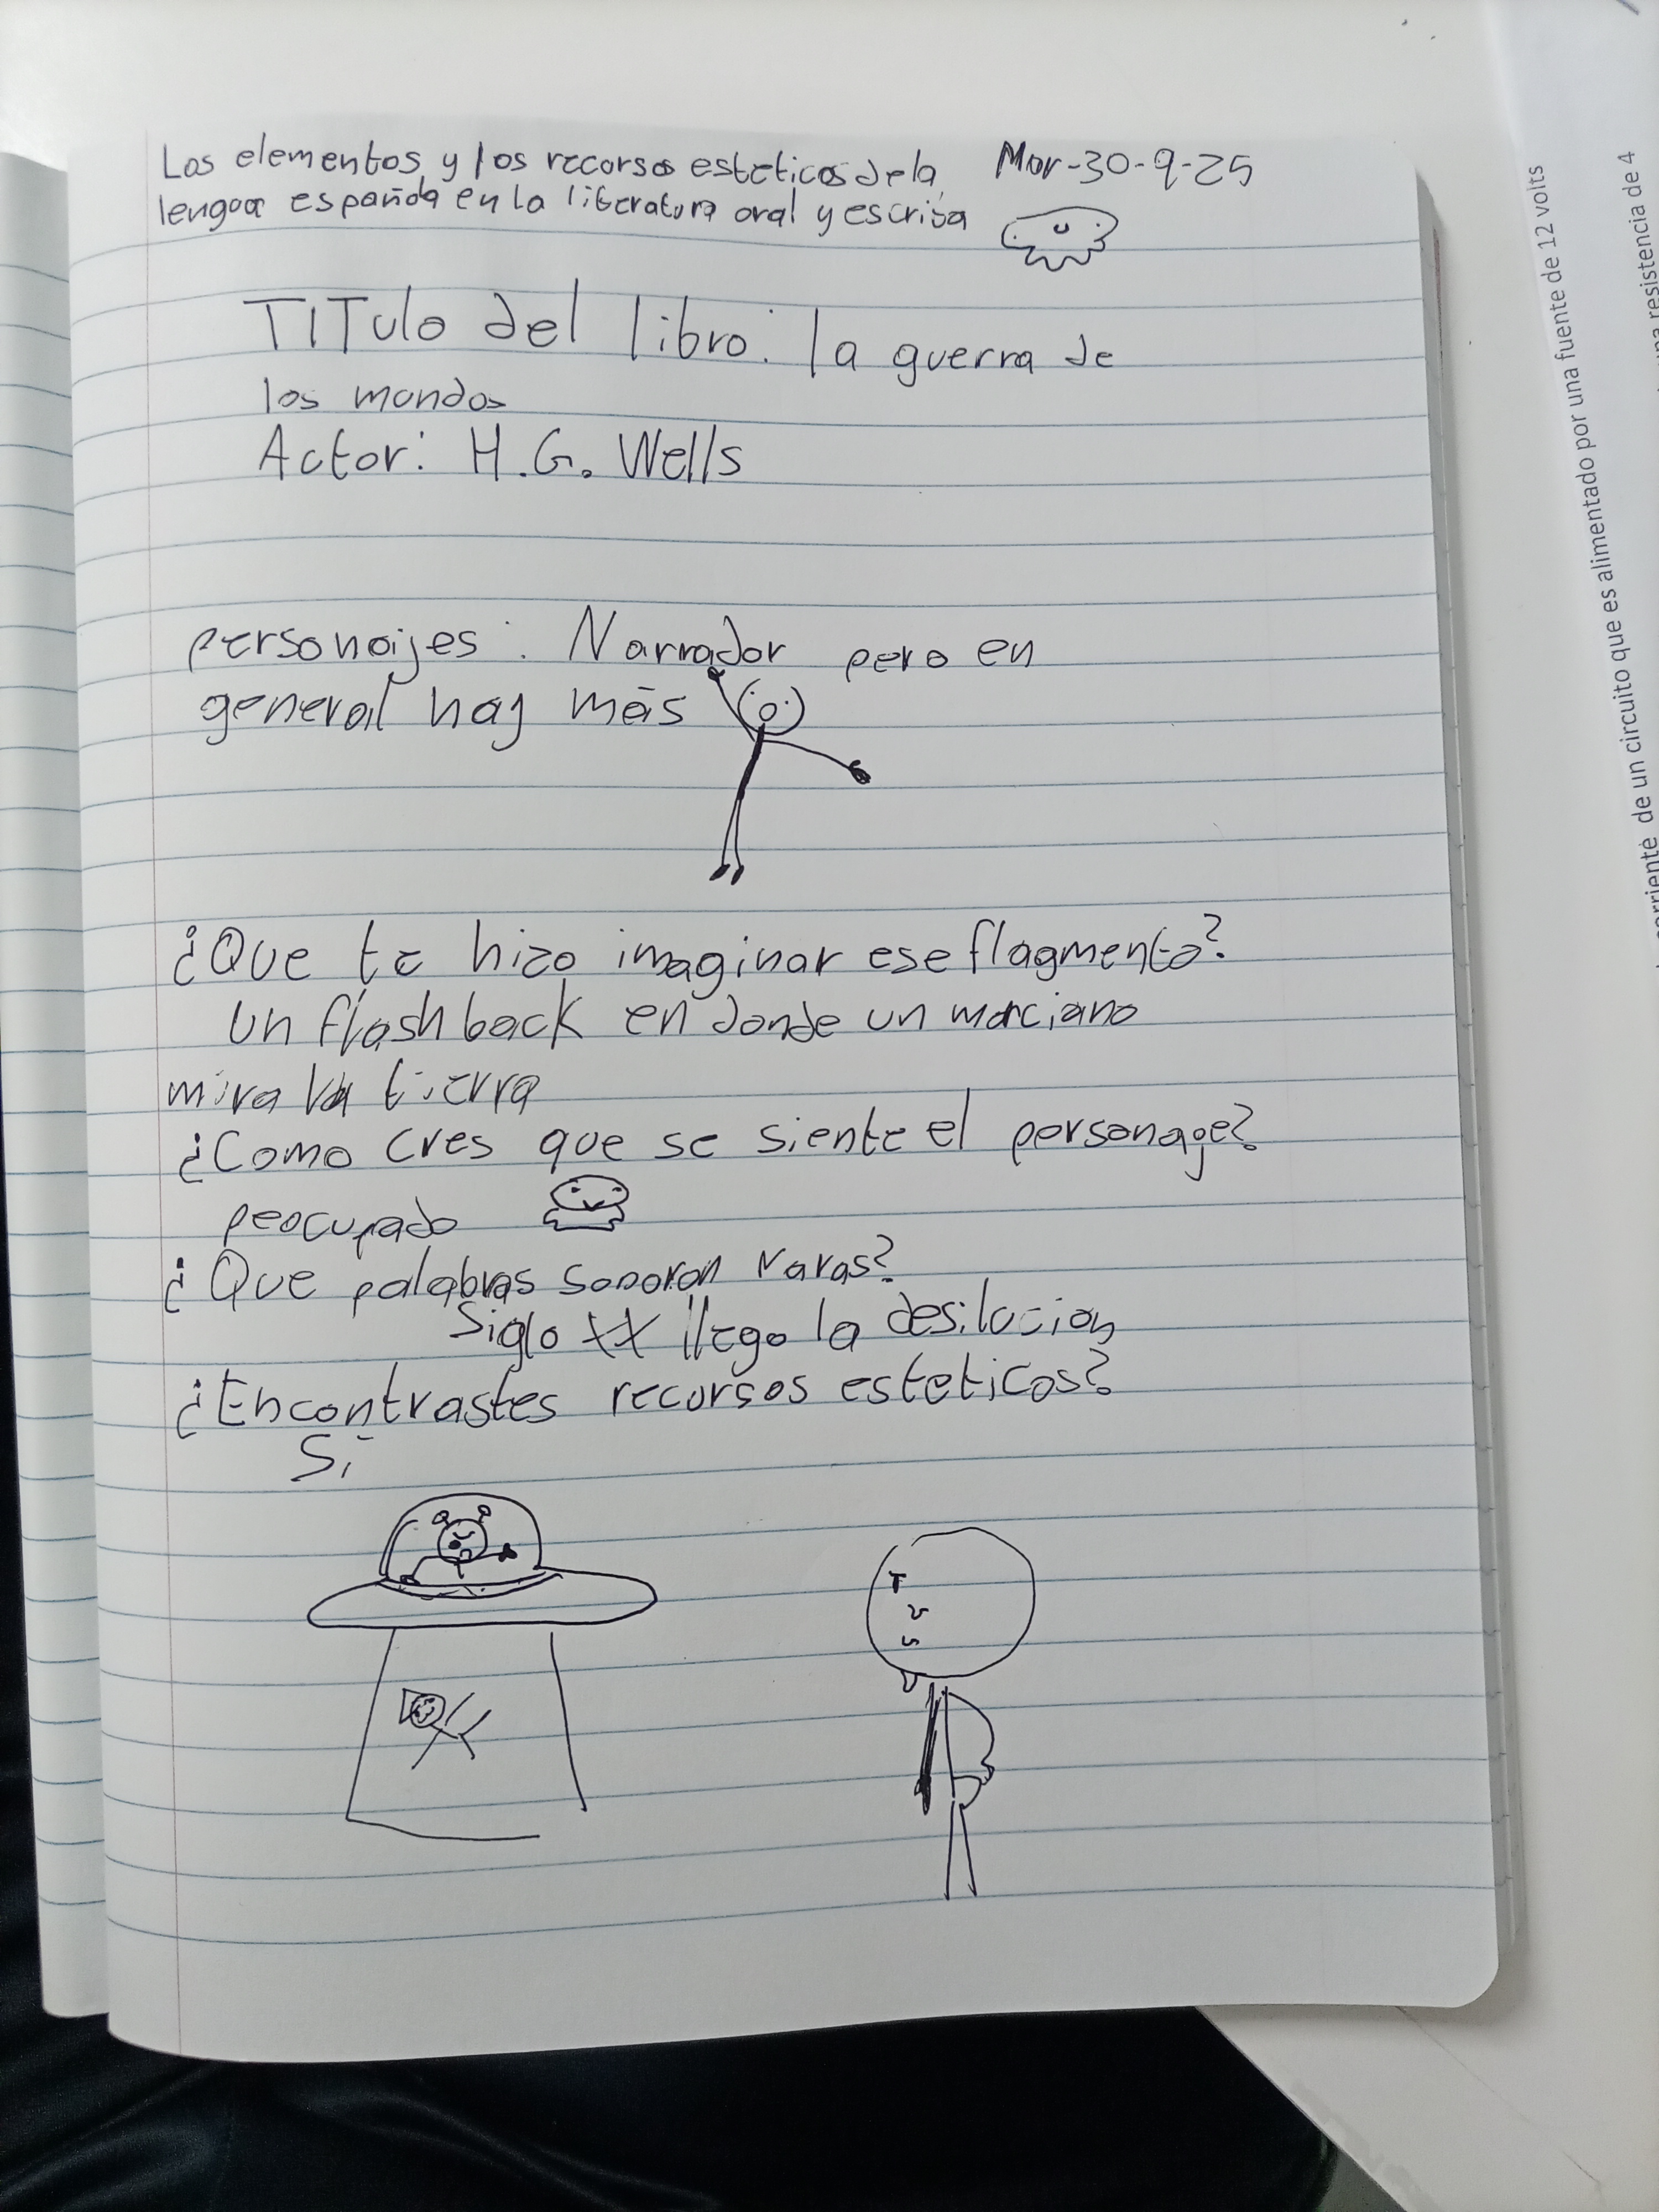 Los elementos y los recursos esteticos de la
lengua española en la literatura oral y escrita
Mar-30-9-25
TITulo del libro: la guerra de
los mundos
Autor: H.G. Wells
personajes: Narrador pero en
general hay más
¿Que te hizo imaginar ese flagmento?
Un flashback en donde un marciano
mira la tierra
¿Como cres que se siente el personage?
peocupado
¿Que palabras sonaron raras?
Siglo XX llego la desilucion
¿Encontrastes recursos esteticos?
Si
corriente de un circuito que es alimentado por una fuente de 12 volts
una resistencia de 4